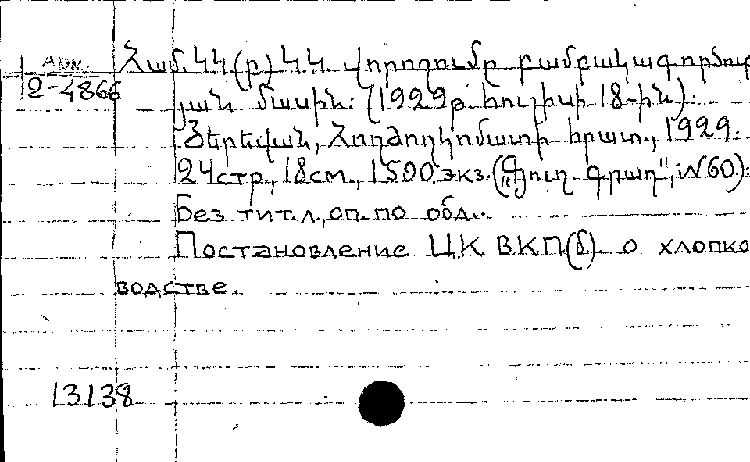 Арм.
2-4866
Համ. ԿԿ(բ)Կ.Կ. վորոշումը բամբակագործու
յան մասին: (1929թ. հուլիսի 18-ին):
Յերեվան, Հաղձողկոմատի հրատ., 1929.
24стр., 18см., 1500 экз. („Գյուղ. գրադ", №60):
Без тит.л., оп. по обл.
Постановление ЦК ВКП(б) о хлопко
водстве.
13138